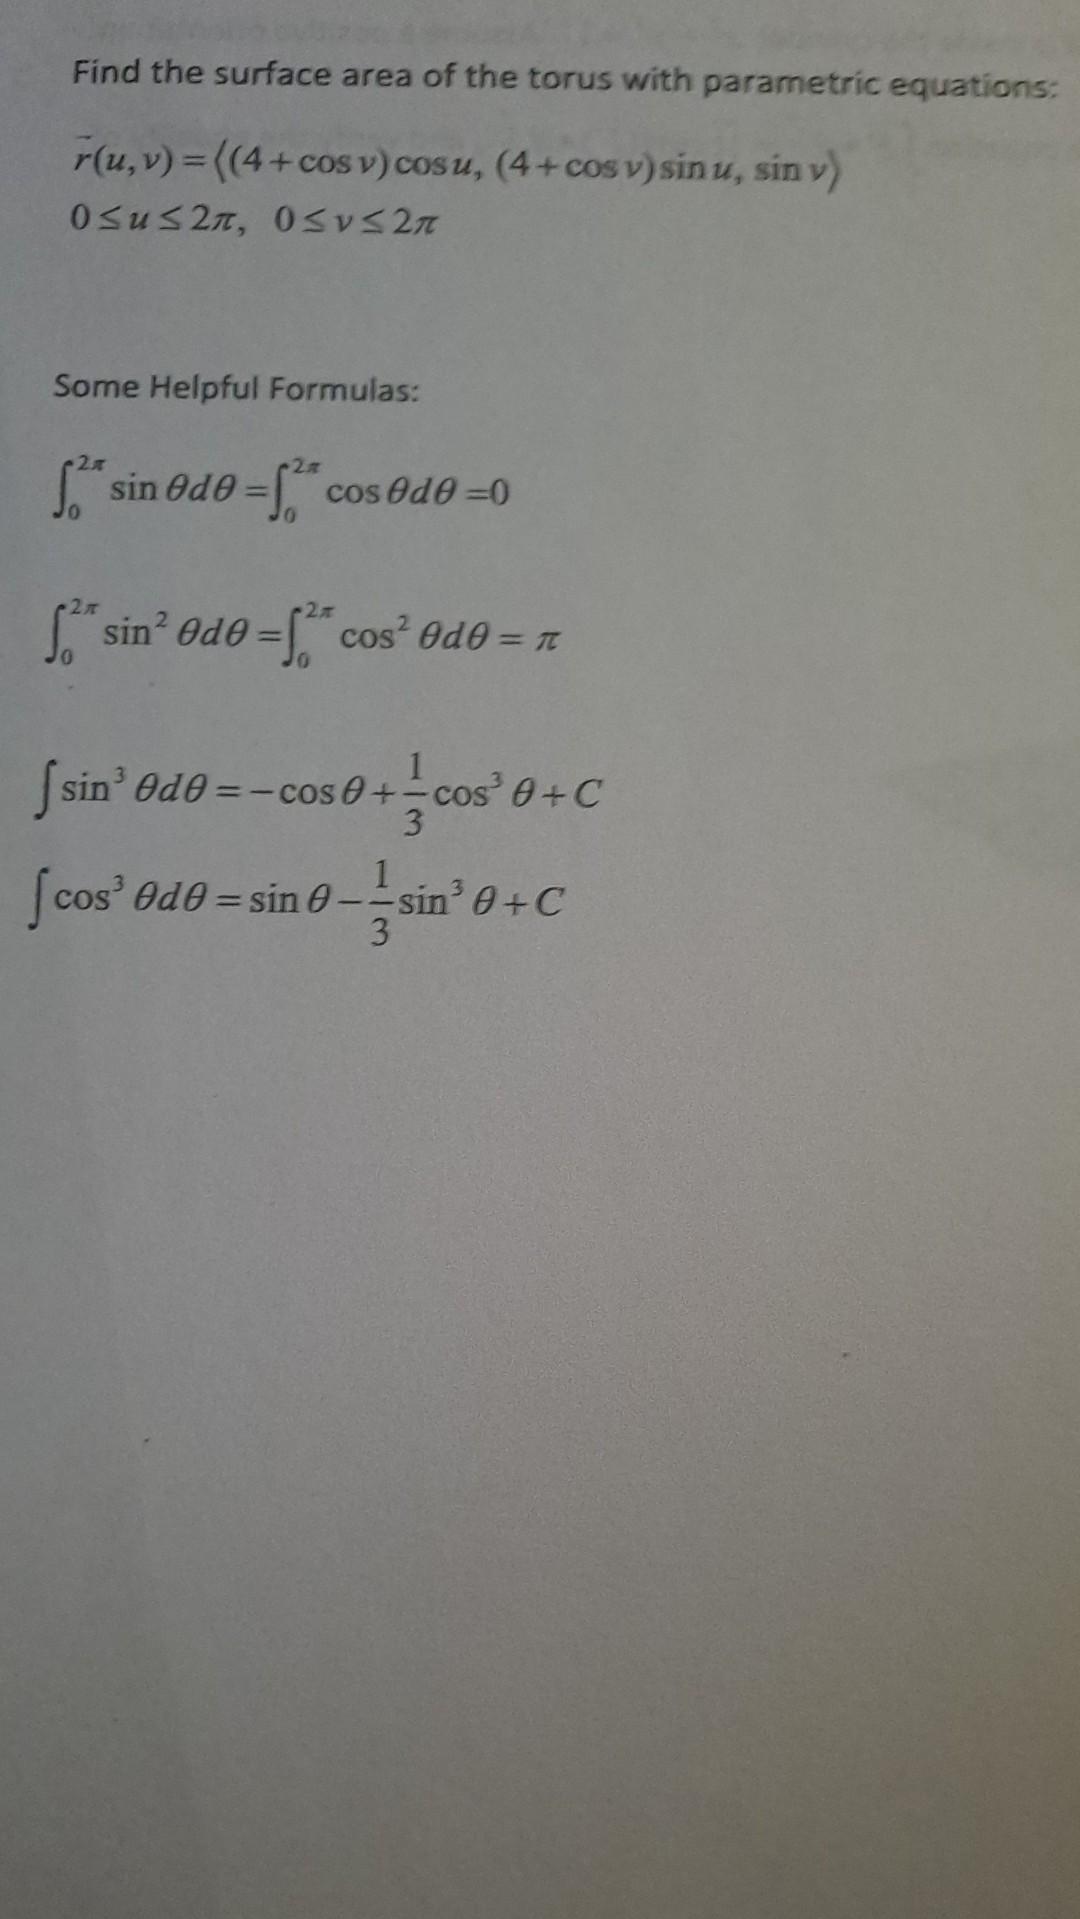 Find the surface area of the torus with parametric equations:
r⃗(u, v) = ⟨(4 + cos v) cos u, (4 + cos v) sin u, sin v⟩
0 ≤ u ≤ 2π, 0 ≤ v ≤ 2π
Some Helpful Formulas:
∫₀^{2π} sin θdθ = ∫₀^{2π} cos θdθ = 0
∫₀^{2π} sin² θdθ = ∫₀^{2π} cos² θdθ = π
∫ sin³ θdθ = −cos θ + 1/3 cos³ θ + C
∫ cos³ θdθ = sin θ − 1/3 sin³ θ + C